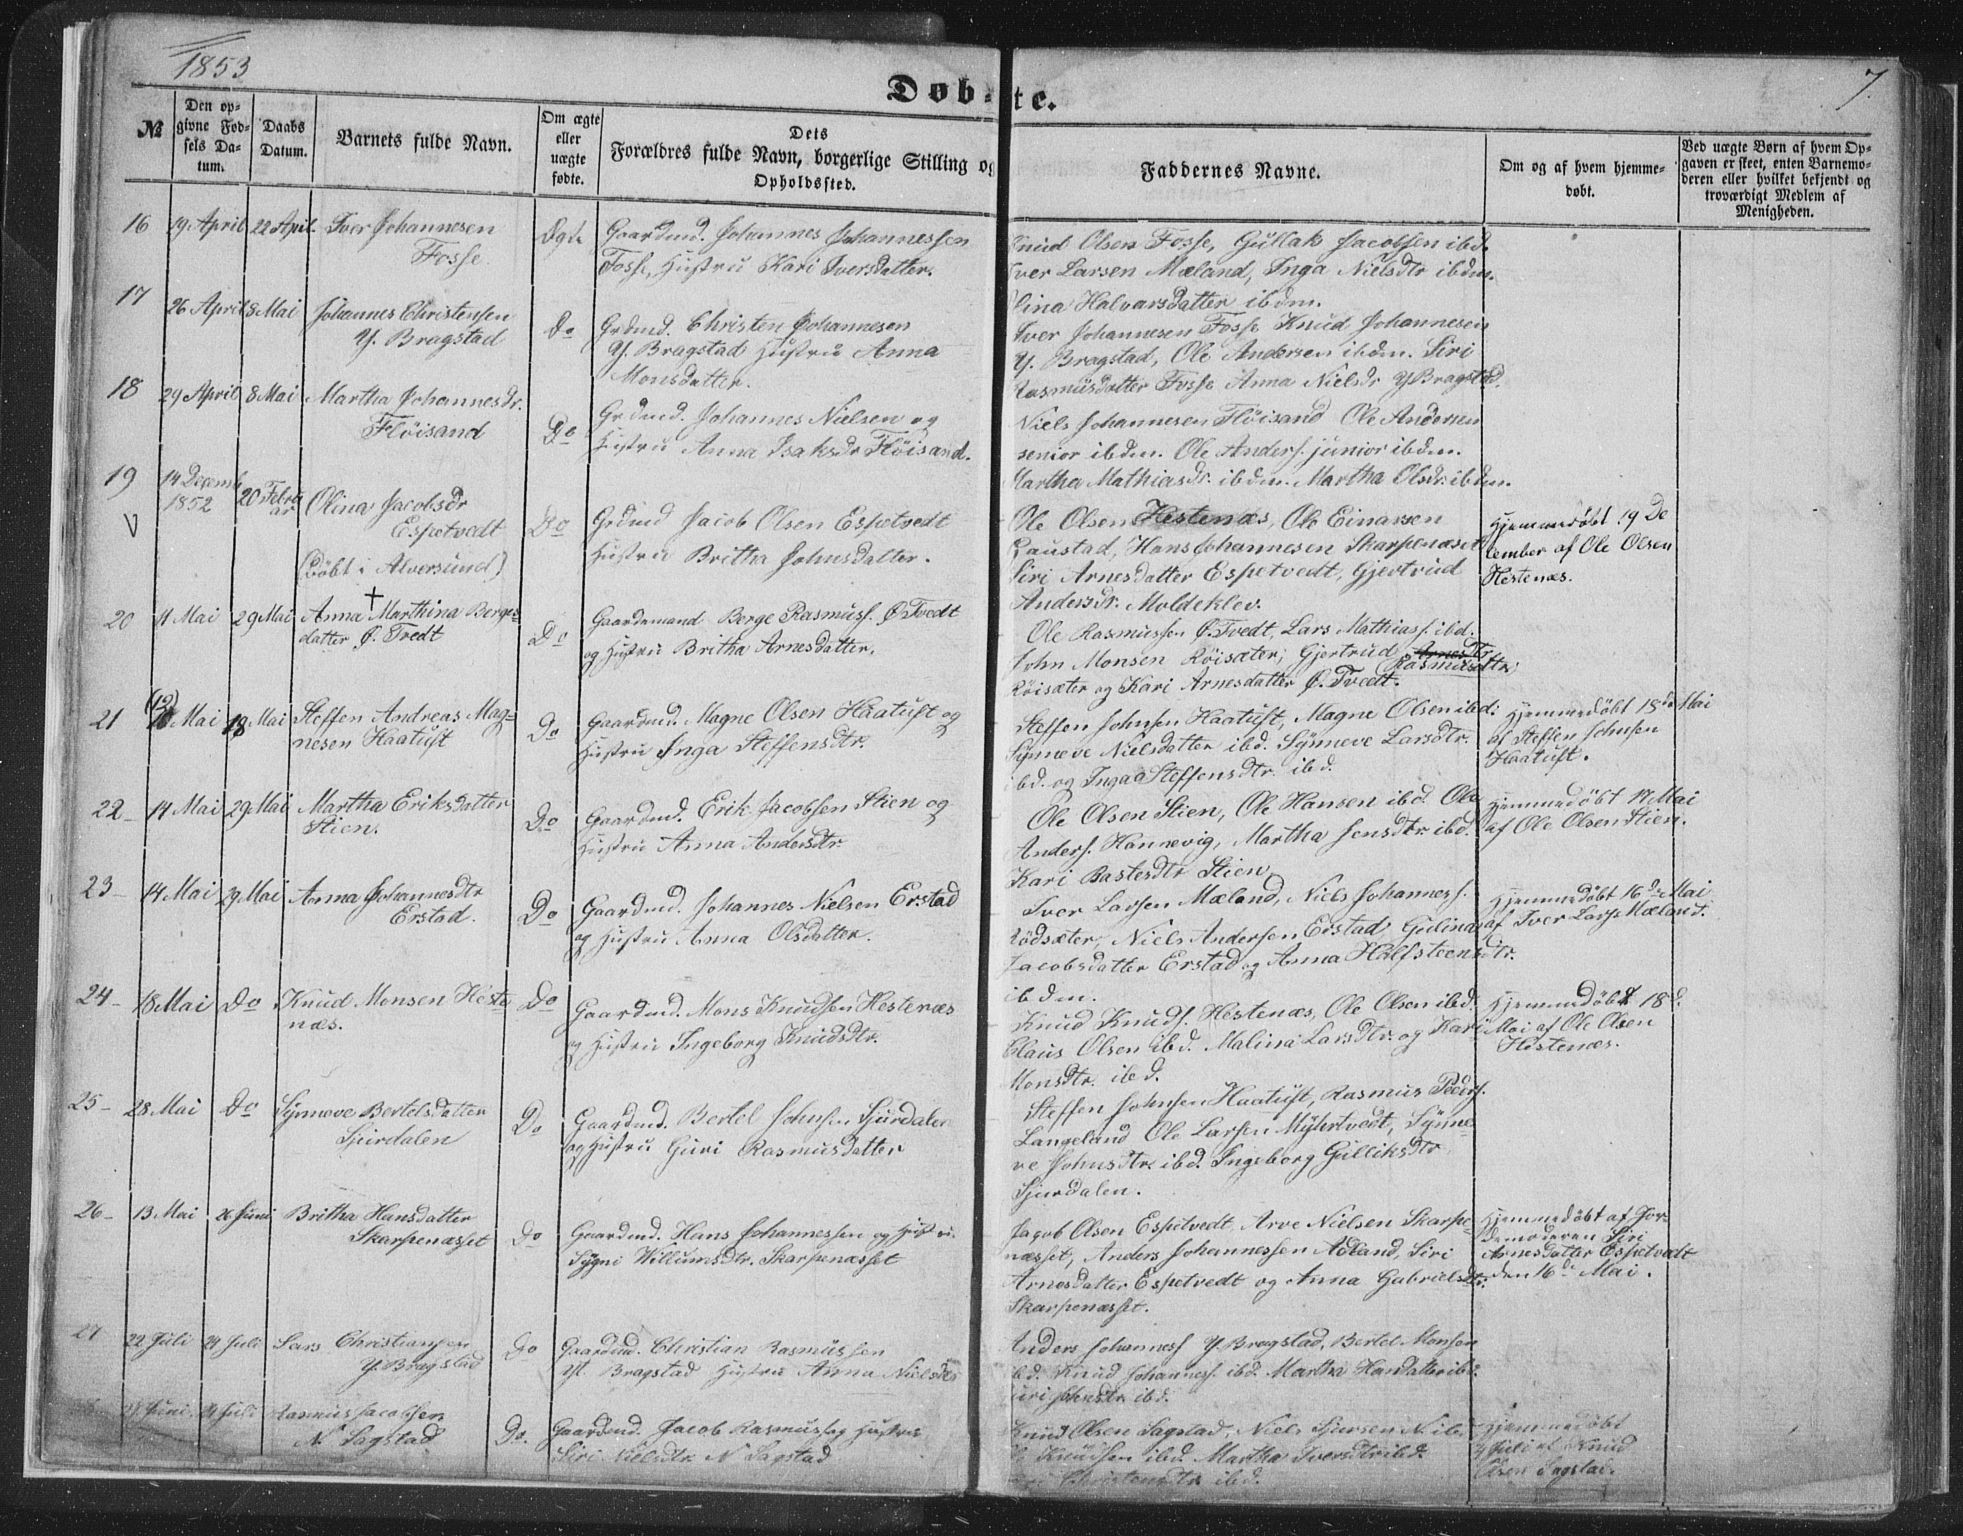 1853
7.
Døb-te.
№
Den opgivne Fødsels Datum.
Daabs Datum.
Barnets fulde Navn.
Om ægte eller uægte fødte.
Dets Forældres fulde Navn, borgerlige Stilling og Opholdssted.
Faddernes Navne.
Om og af hvem hjemmedøbt.
Ved uægte Børn af hvem Opgaven er skeet, enten Barnemoderen eller hvilket bekjendt og troværdigt Medlem af Menigheden.
16 19 April 22 April. Iver Johannesen
Fosse
Ægte
Gaardmd. Johannes Johannessen
Fosse, Hustru Kari Iversdatter.
Knud Olsen Fosse, Gullak Jacobsen ibd.
Iver Larsen Mæland, Inga Nielsdtr ibdm.
Halvarsdatter ibdm.
17 26 April 8 Mai Johannes Christensen
Y. Bragstad
Do
Grdmd. Christen Johannesen
Y. Bragstad Hustru Anna
Monsdatter.
Iver Johannesen Fosse Knud Johannesen
Y. Bragstad, Ole Andersen ibdm. Siri
Rasmusdatter Fosse Anna Nielsdr Y Bragstad.
18 29 April 8 Mai Martha Johannesdr.
Fløisand
Do
Grdmd. Johannes Nielsen og
Hustru Anna Isaksdr Fløisand.
Niels Johannesen Fløisand Ole Andersen
senior ibdm. Ole Anders. junior ibdm.
Martha Mathiasdr. ibdm. Martha Olsdr. ibdm.
19 14 Decemb
1852 20 Februar
V
Olina Jacobsdr
Espetvedt
(Døbt i Alversund)
Do
Grdmd Jacob Olsen Espetvedt
Hustru Britha Johnsdatter.
Ole Olsen Hestenæs, Ole Einarsen
Hans Johannesen Skarpenæset
Siri Arnesdatter Espetvedt, Gjertrud
Andersdr. Moldeklev.
Hjemmedøbt 19 De
cember af Ole Olsen
Hestenæs.
20 11 Mai 29 Mai Anna Marthina Berges-
datter Ø. Tvedt
Do
Gaardmand Berge Rasmuss. Ø. Tvedt
og Hustru Britha Arnesdatter.
Ole Rasmussen Ø. Tvedt, Lars Mathiass. ibd.
John Monsen Røisæter, Gjertrud Arnesdtr
Rasmusdttr.
Røisæter og Kari Arnesdatter Ø. Tvedt.
21 (12) Mai 18 Mai Steffen Andreas Mag-
nesen Haatuft
Do
Gaardmd. Magne Olsen Haatuft og
Hustru Inga Steffensdtr.
Steffen Johnsen Haatuft, Magne Olsen ibd.
Synneve Nielsdatter ibd. Synneve Larsdtr.
ibd. og Inga Steffensdtr. ibd.
Hjemmedøbt 18de Mai
af Steffen Johnsen
Haatuft.
22 14 Mai 29 Mai Martha Eriksdatter
Stien.
Do
Gaardmd. Erik Jacobsen Stien og
Hustru Anna Andersdtr.
Ole Olsen Stien, Ole Hansen ibd. Ole
Anders. Hannevig, Martha Jensdtr ibd.
Kari Bastesdtr Stien
Hjemmedøbt 17 Mai
af Ole Olsen Stien.
23 14 Mai 29 Mai Anna Johannesdtr
Erstad.
Do
Gaardmd. Johannes Nielsen Erstad
og Hustru Anna Olsdatter.
Iver Larsen Mæland, Niels Johanness.
Rødsæter, Niels Andersen Erstad Gulina
Jacobsdatter Erstad og Anna Halfsteensdtr.
ibdm.
Hjemmedøbt 16de Mai
af Iver Larss. Mæland.
24 18 Mai Do Knud Monsen Heste
næs.
Do
Gaardmd. Mons Knudsen Hestenæs
og Hustru Ingeborg Knudsdtr.
Knud Knuds. Hestenæs, Ole Olsen ibd.
Claus Olsen ibd. Malina Larsdtr. og Kari
Monsdtr. ibd.
Hjemmedøbt 18d.
Mai af Ole Olsen
Hestenæs.
25 28 Mai Do Synneve Bertelsdatter
Sjurdalen
Do
Gaardmd. Bertel Johnsen Sjurdalen
og Hustru Guri Rasmusdatter
Steffen Johnsen Haatuft, Rasmus Peders.
Langeland Ole Larsen Myhrtvedt, Synne
ve Johnsdtr. ibd. Ingeborg Gulliksdtr
Sjurdalen.
26 13 Mai 26 Juni Britha Hansdatter
Skarpenæsset
Do
Gaardmd. Hans Johannessen og Hustru
Sygni Willumsdtr. Skarpenæsset
Jacob Olsen Espetvedt, Arve Nielsen Skarpe-
næsset, Anders Johannessen Adland, Siri
Arnesdatter Espetvedt og Anna Gabrielsdtr.
Skarpenæsset.
Hjemmedøbt af Jor-
demoderen Siri
Arnesdatter Espetvedt
den 16de Mai.
27 22 Juli 24 Juli Lars Christiansen
Y. Bragstad
Do
Gaardmd. Christian Rasmussen
Yt. Bragstad Hustru Anna Nielsdtr
Anders Johanness Y. Bragstad, Bertel Monsen
ibd. Knud Johanness. ibd. Martha Hansdatter ibd.
Guri Johnsdtr. ibd.
Juni 24 Juli Rasmus Jacobsen
N. Sagstad
Do.
Gaardmd. Jacob Rasmuss og Hustru
Siri Nielsdtr. N Sagstad
Knud Olsen Sagstad, Niels Sjursen N. ib.
Knudsen ibd. Martha Iversdtr ibd.
Christensdtr ibd.
Hjemmedøbt
Juli af Knud
Olsen Sagstad.